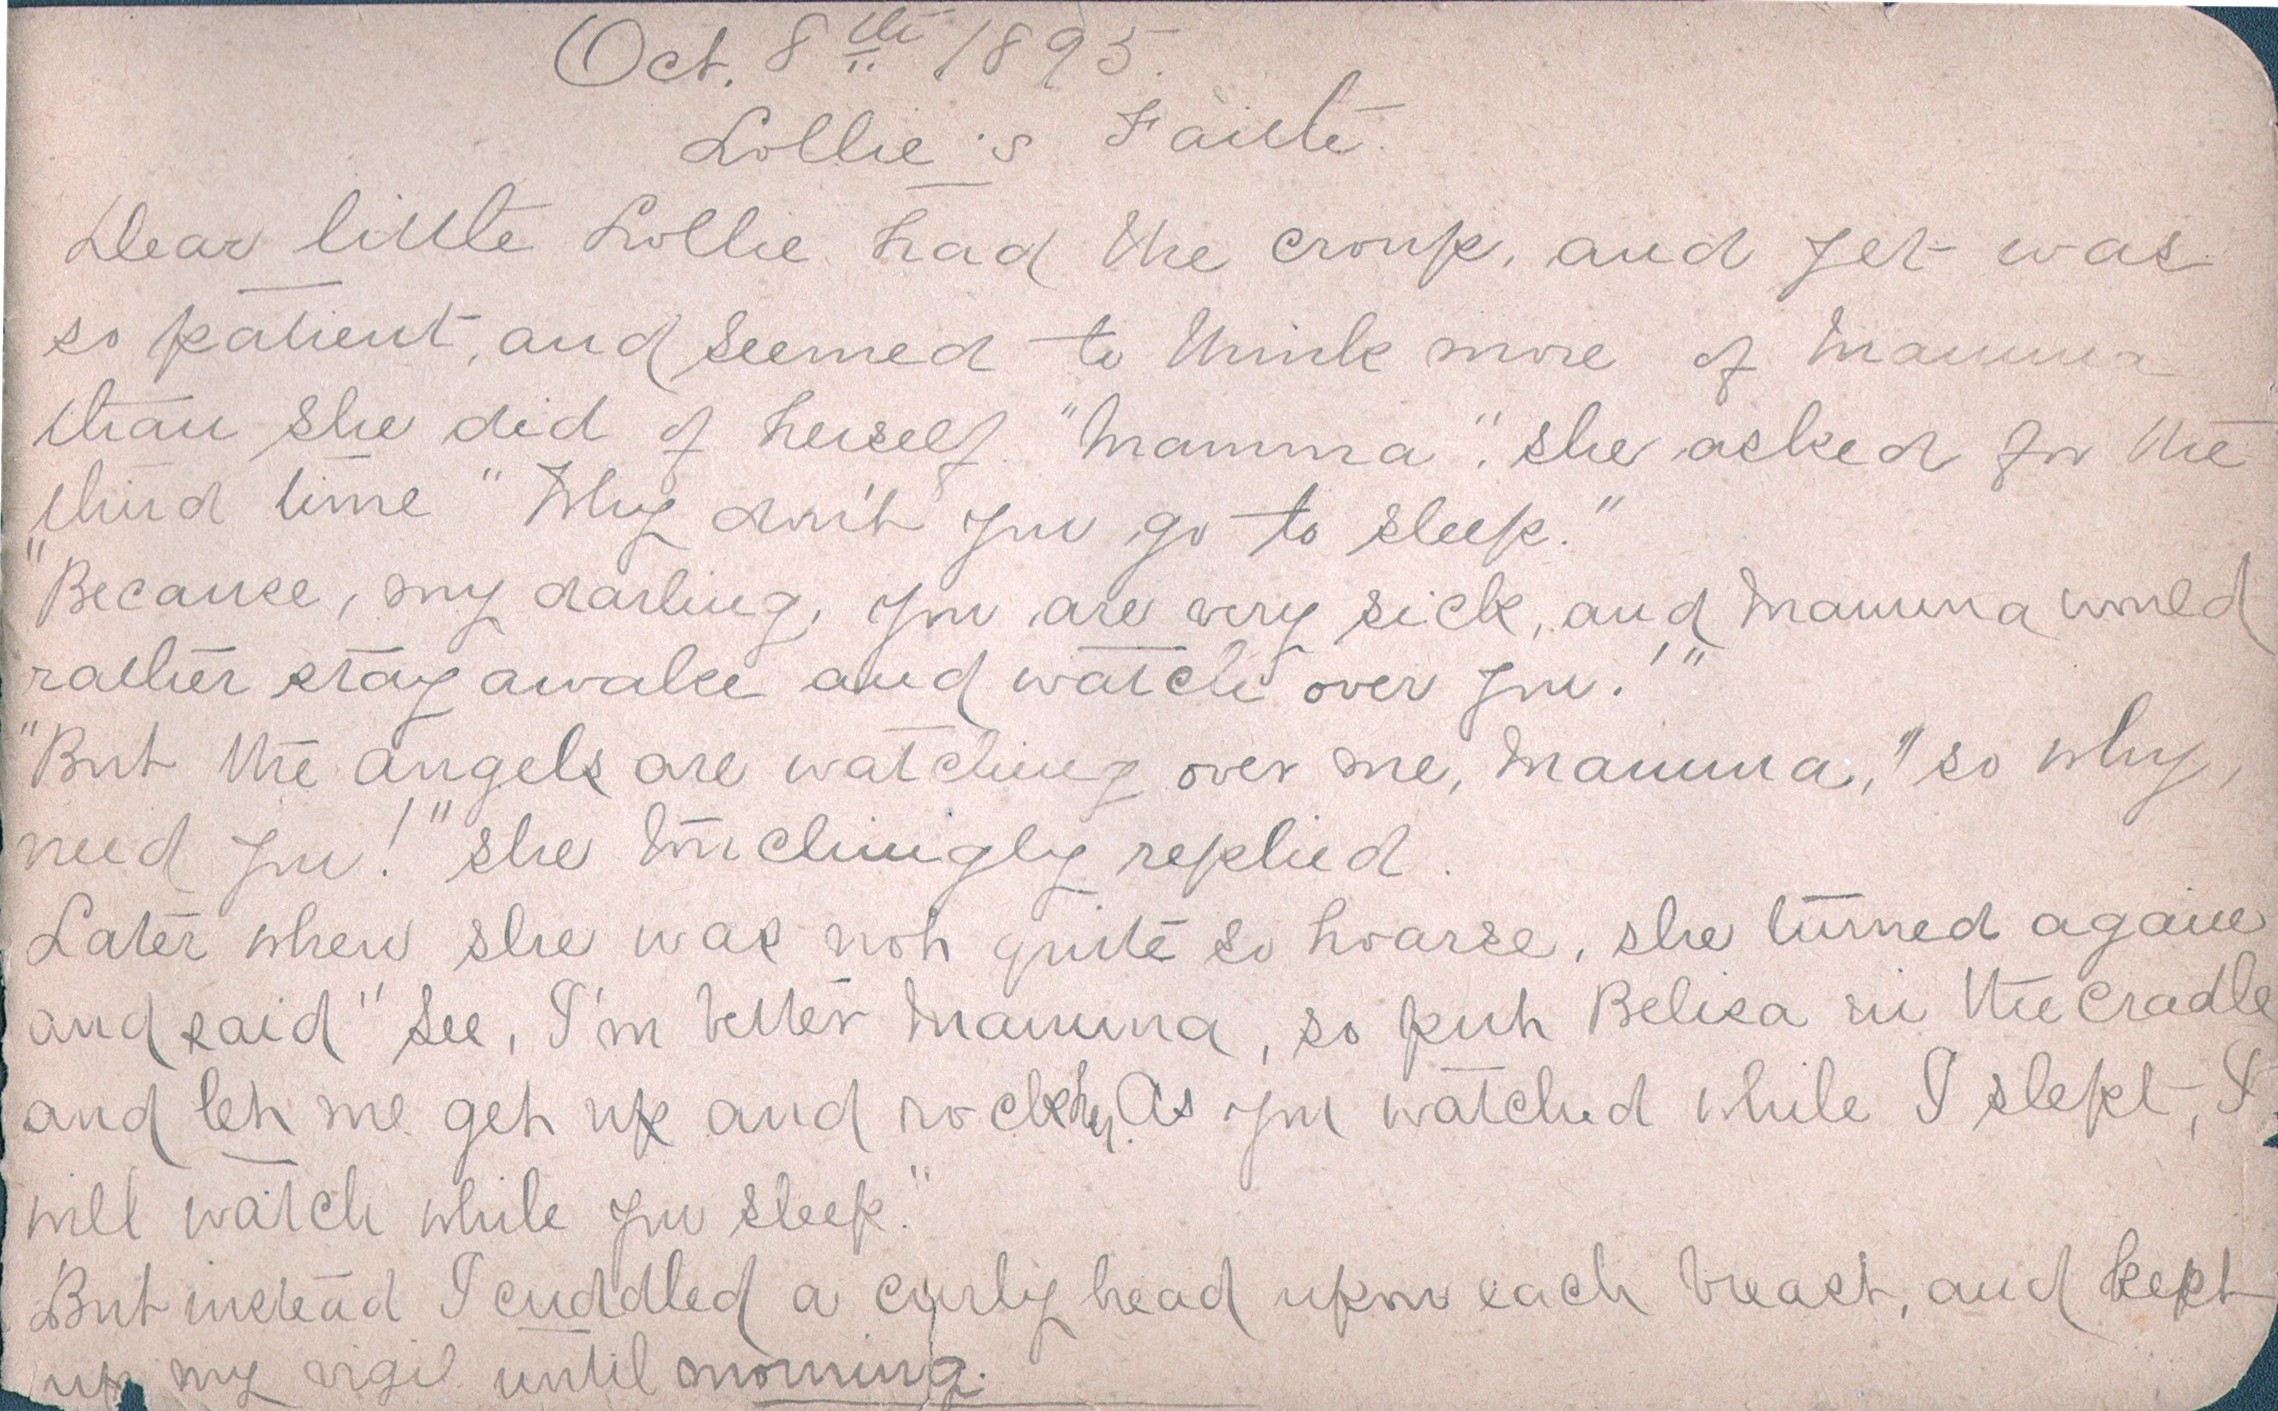 Oct. 8th 1895.
Lollie's Faith.
Dear little Lollie had the croup, and yet was
so patient, and seemed to think more of Mamma
than she did of herself. "Mamma", she asked for the
third time "Why don't you go to sleep."
"Because, my darling, you are very sick, and Mamma would
rather stay awake and watch over you!"
"But the angels are watching over me, Mamma," so why,
need you!" she touchingly replied.
Later when she was not quite so hoarse, she turned again
and said "See, I'm better Mamma, so put Belisa in the cradle
and let me get up and rock her. As you watched while I slept, I
will watch while you sleep."
But instead I cuddled a curly head upon each breast, and kept
up my vigil until morning.